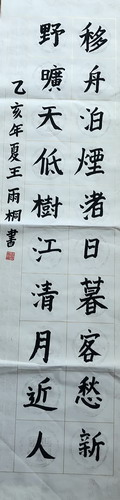 移舟泊煙渚日暮客愁新
野曠天低樹江清月近人
乙亥年夏王雨桐書